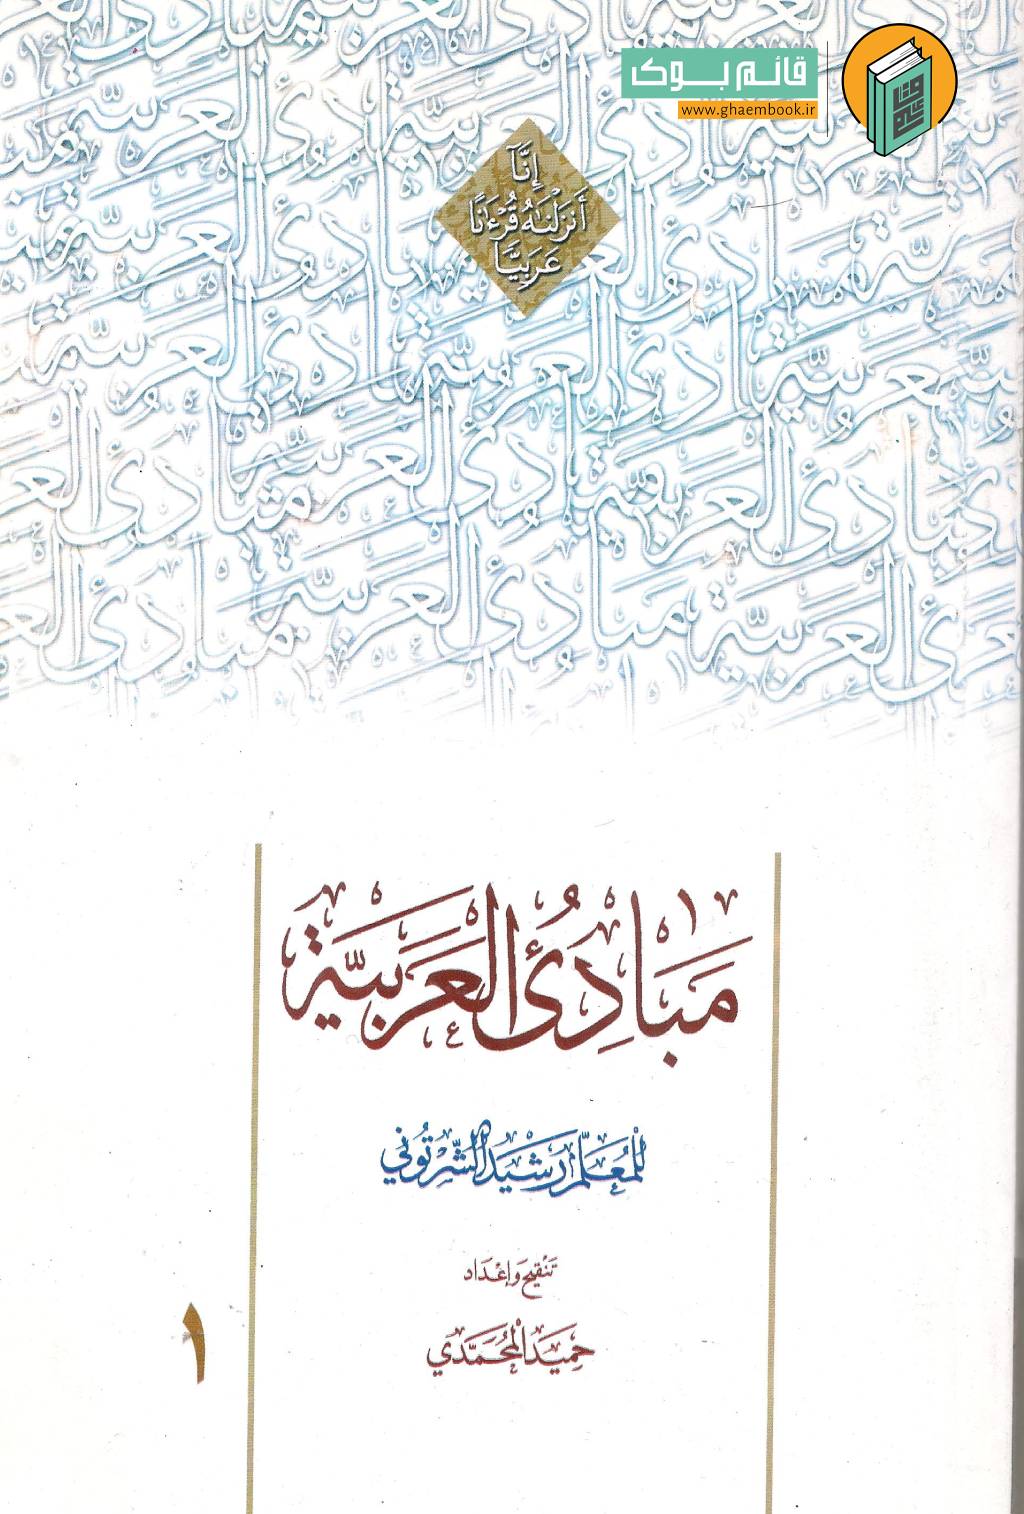 قائم بوک
www.ghaembook.ir
إِنَّآ
أَنزَلْنَٰهُ قُرْءَٰنًا
عَرَبِيًّا
مَبَادِئُ العَرَبِيَّة
لِلْمُعَلِّم رَشيد الشّرتُوني
تَنْقيح وَإعْدَاد
حَميد المُحَمَّدي
١